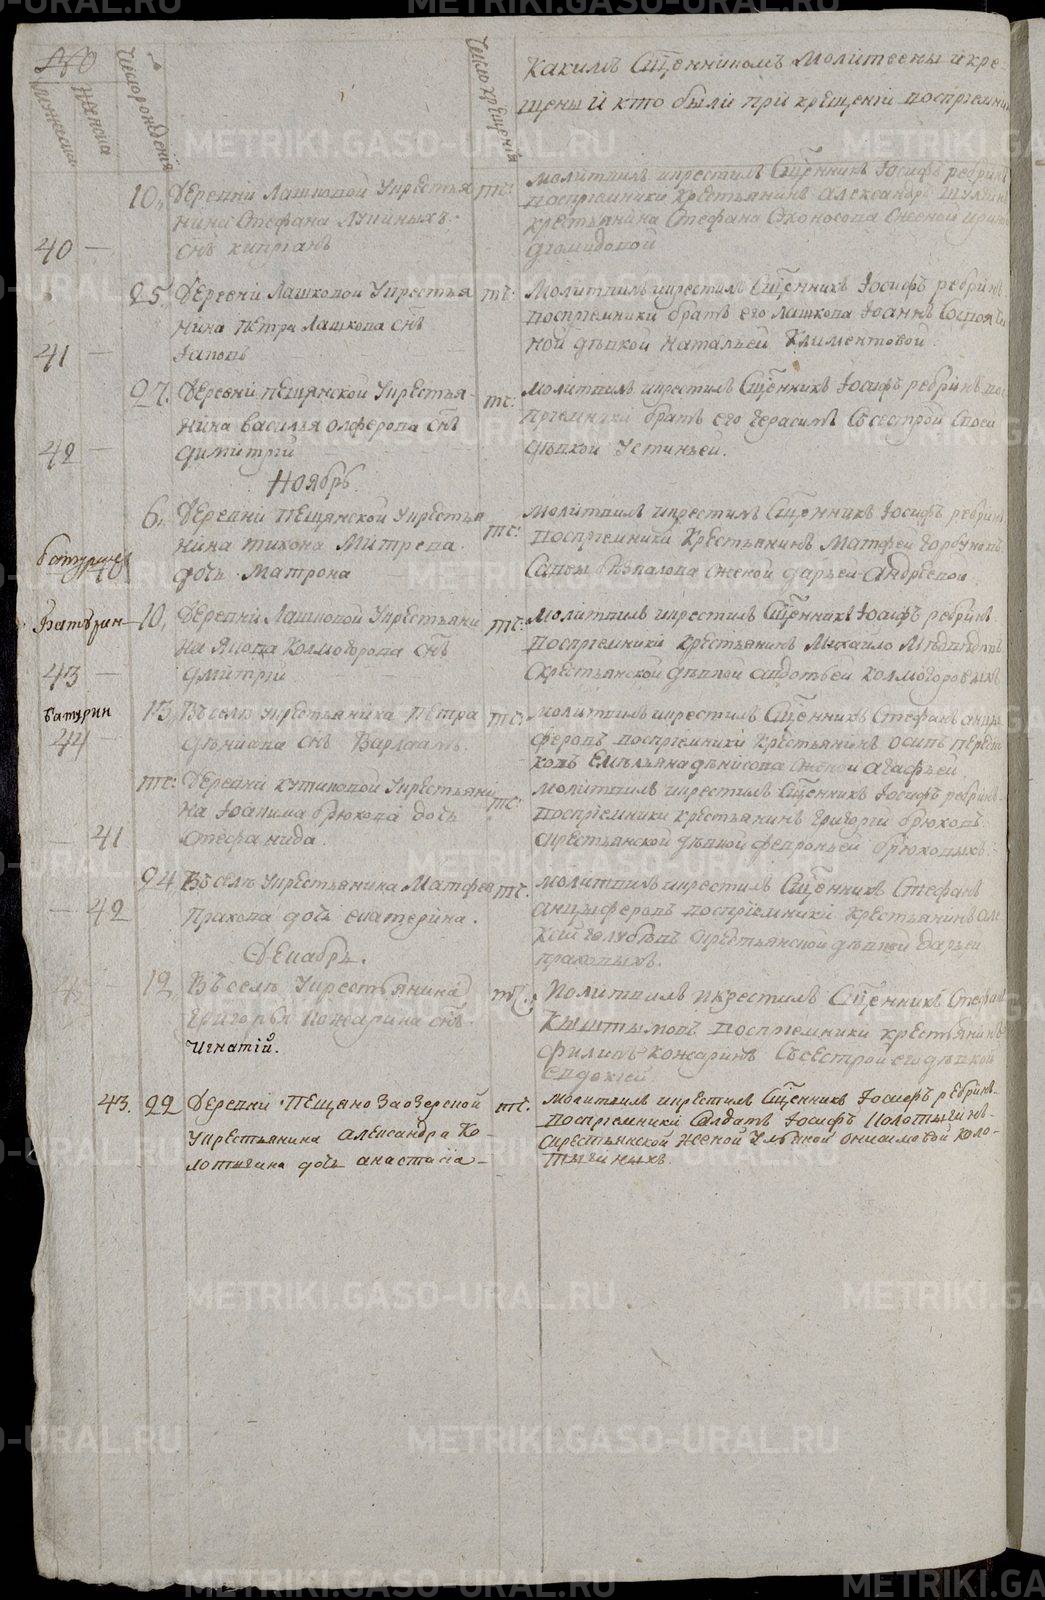 мужеска
женска
Число рождения
Число крещенія
Какимъ Сщ҃енникомъ Молитвены и кре-
щены и кто были при крещении воспріемники
10. деревни Лашковой укрестья
тч:
нина Стефана
40 — снъ киприанъ
молитвилъ икрестилъ Сщ҃енникъ Іосифъ ребринъ
воспріемники крестьянинъ александръ
крестьянина Стефана женой
25. деревни Лашковой укрестья
тч:
нина петра Лашкова снъ
41 —
Молитвилъ икрестилъ Сщ҃енникъ Іосифъ ребринъ
воспріемники братъ его Лашкова Іоаннъ
ной дѣвкой натальей Климентовой
27. деревни пещянской укрестья-
тч:
нина василья олферова снъ
42 — димитрий
молитвилъ икрестилъ Сщ҃енникъ Іосифъ ребринъ вос-
пріемники братъ его герасимъ съсестрой своей
дѣвкой устиньей.
Ноябрь
6. деревни пещянской укрестья
тч:
нина тихона Митрева
дочь Матрона
40
молитвилъ икрестилъ Сщ҃енникъ Іосифъ ребринъ
воспріемники крестьянинъ Матфей горбуновъ
Савы женой дарьей андреевой
Батурин
10. деревни Лашковой укрестьяни
тч:
на Якова Колмогорова снъ
43 — дмитрий
Молитвилъ икрестилъ Сщ҃енникъ Іосифъ ребринъ
воспріемники крестьянинъ Михайло
скрестьянской дѣвкой Колмогоровыхъ
Батурин
13. Въселѣ укрестьянина петра
тч:
44 — снъ Варлаамъ.
молитвилъ икрестилъ Сщ҃енникъ Стефанъ анцы
феровъ воспріемники крестьянинъ осипъ
Емельяна денисова женой агафьей
тч: деревни кутиковой укрестьяни
тч:
на Іоакима брюхова дочь
— 41 стефанида.
молитвилъ икрестилъ Сщ҃енникъ Іосифъ ребринъ
воспріемники крестьянинъ григорій брюховъ
скрестьянской дѣвкой февроньей брюховыхъ.
24 Въселѣ укрестьянина Матфея
тч.
— 42 прахова дочь екатерина.
молитвилъ икрестилъ Сщ҃енникъ Стефанъ
анцыферовъ воспріемники крестьянинъ але
ксѣй скрестьянской дѣвкой дарьей
праховыхъ.
Декабрь.
45 — 12 Въселѣ укрестьянина
тч:
григорья кожарина снъ
игнатій.
Молитвилъ икрестилъ Сщ҃енникъ Стефанъ
Кыштымовъ воспріемники крестьянинъ
филипъ кожаринъ съсестрой его дѣвкой
евдокіей
43. 22 деревни пещяно заозерской
тч.
укрестьянина александра ко-
лотыгина дочь анастасіа —
молитвилъ икрестилъ Сщ҃енникъ Іосифъ ребринъ-
воспріемники Солдатъ Іосифъ колотыгинъ-
скрестьянской женой онисимовой коло-
тыгиныхъ.
METRIKI.GASO-URAL.RU